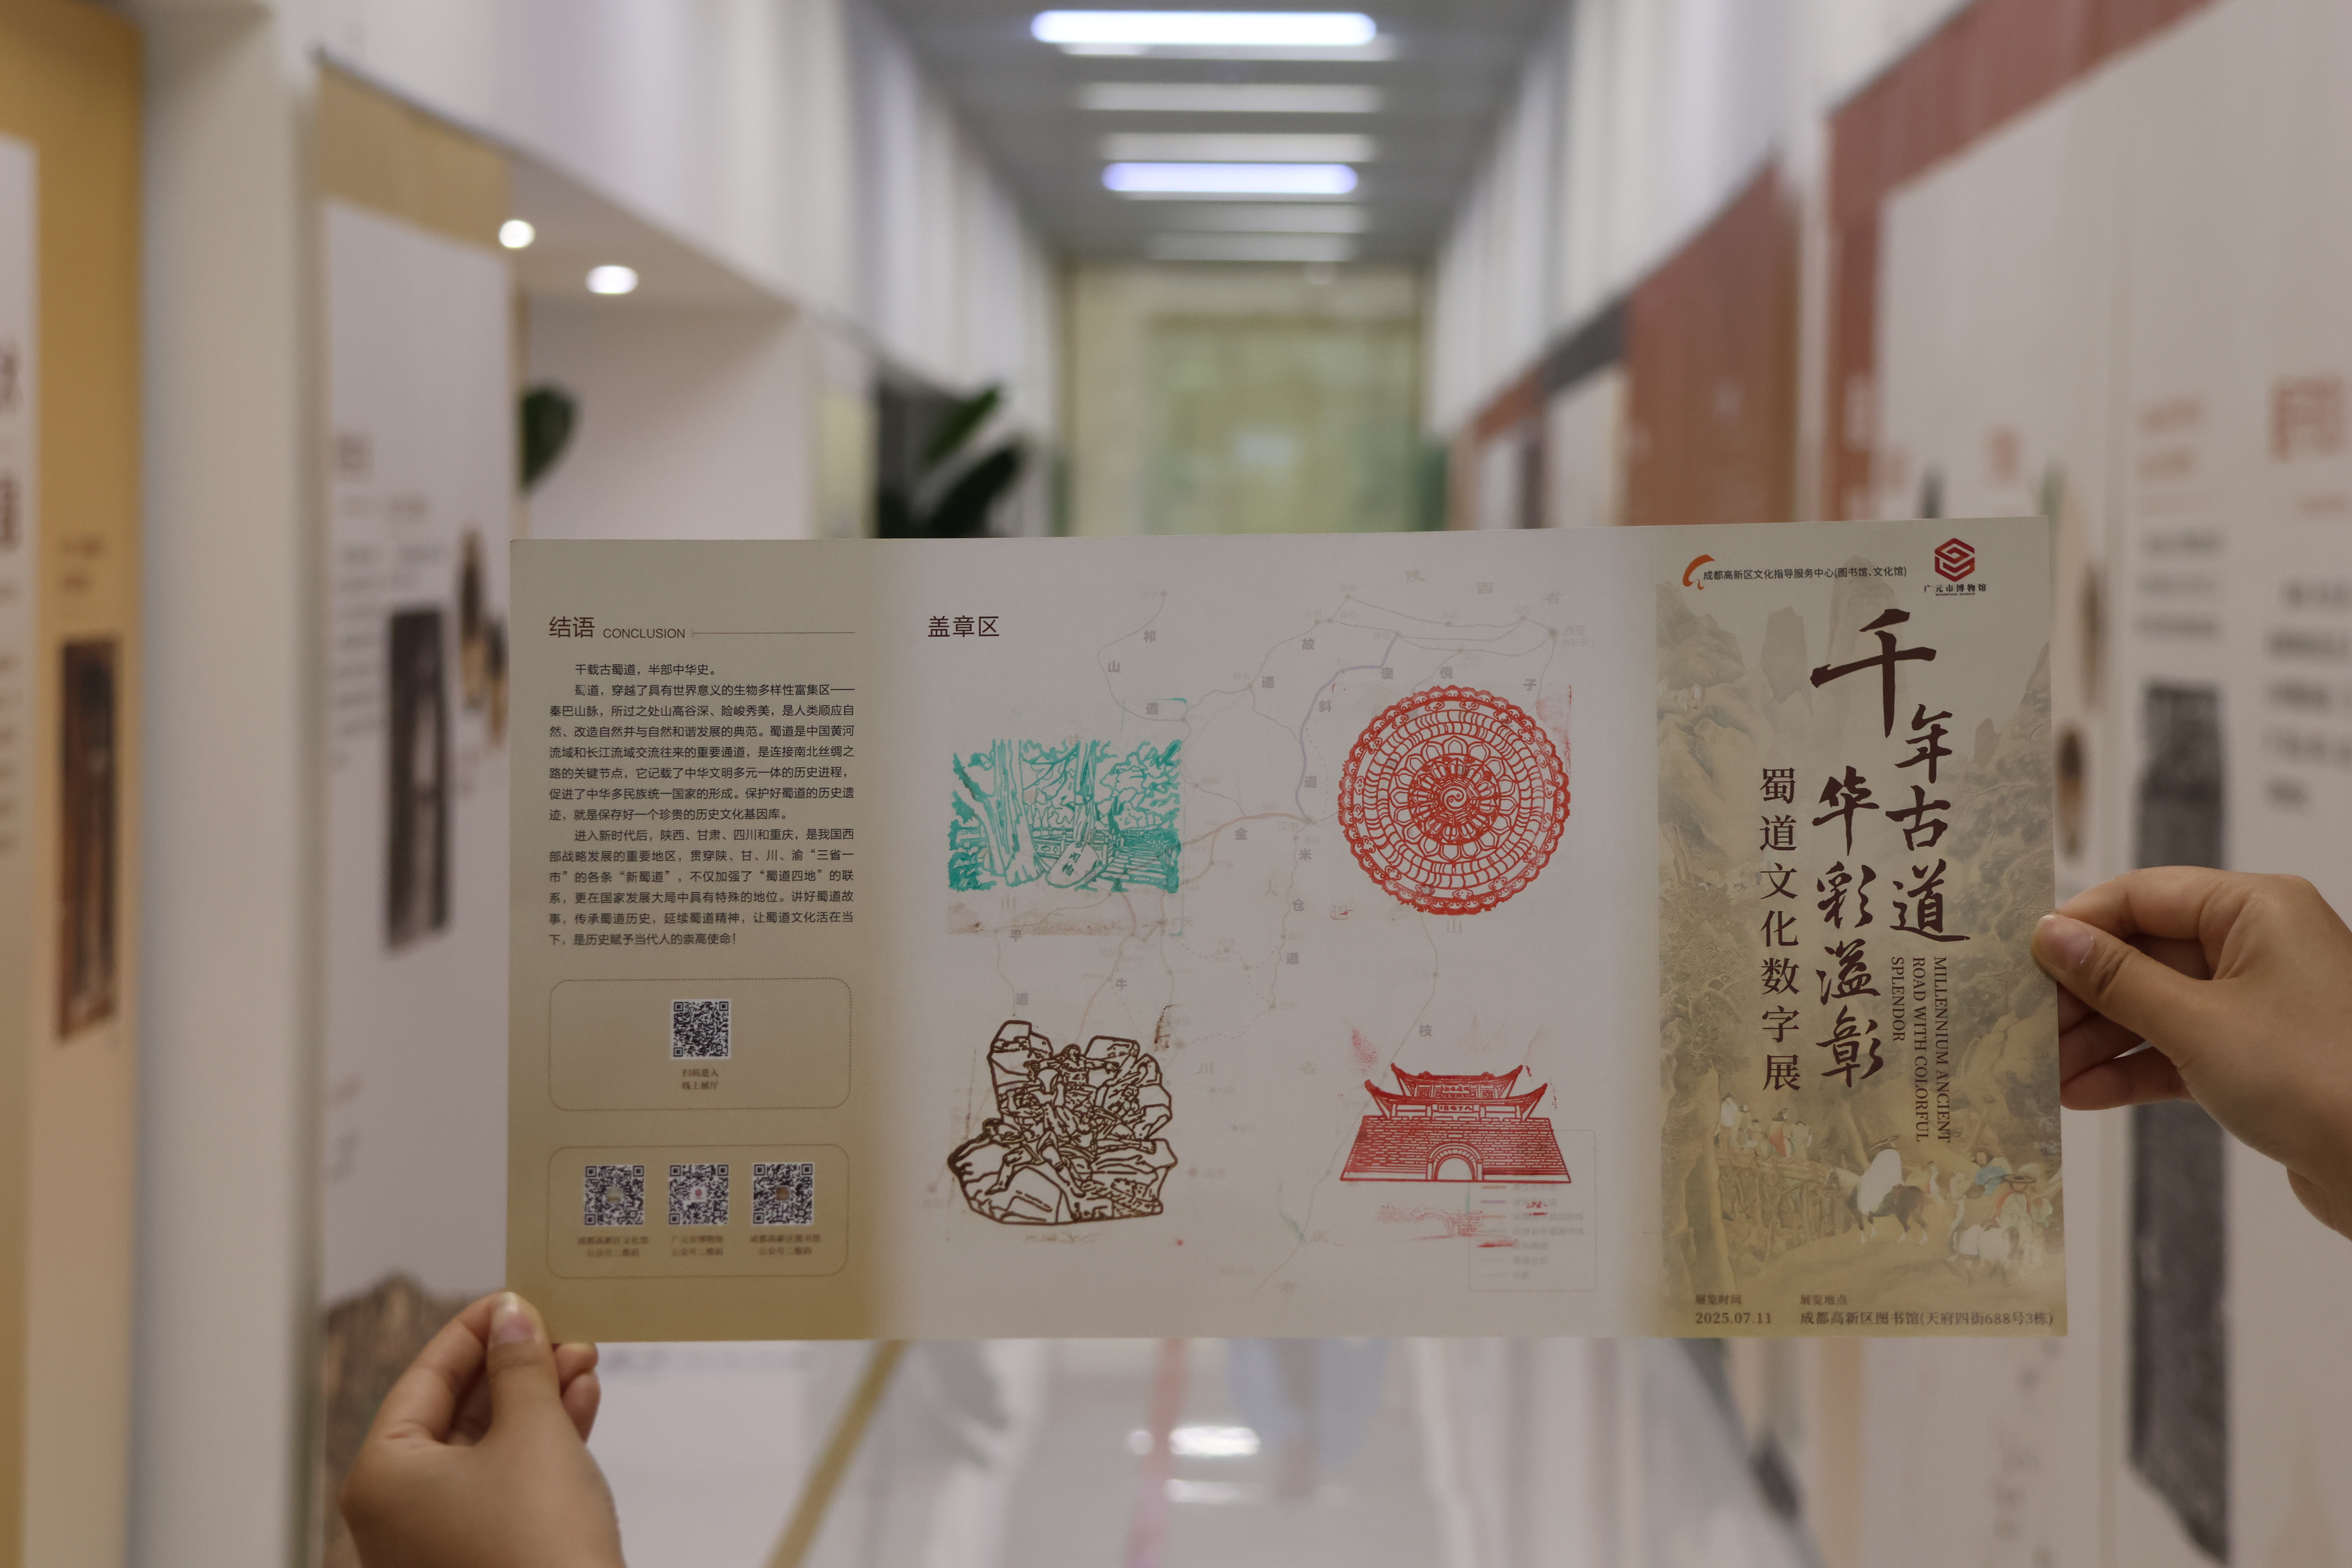 结语 CONCLUSION
千载古蜀道，半部中华史。
蜀道，穿越了具有世界意义的生物多样性富集区——
秦巴山脉，所过之处山高谷深、险峻秀美，是人类顺应自
然、改造自然并与自然和谐发展的典范。蜀道是中国黄河
流域和长江流域交流往来的重要通道，是连接南北丝绸之
路的关键节点，它记载了中华文明多元一体的历史进程，
促进了中华多民族统一国家的形成。保护好蜀道的历史遗
迹，就是保存好一个珍贵的历史文化基因库。
进入新时代后，陕西、甘肃、四川和重庆，是我国西
部战略发展的重要地区，贯穿陕、甘、川、渝“三省一
市”的各条“新蜀道”，不仅加强了“蜀道四地”的联
系，更在国家发展大局中具有特殊的地位。讲好蜀道故
事，传承蜀道历史，延续蜀道精神，让蜀道文化活在当
下，是历史赋予当代人的崇高使命！
扫码进入
线上展厅
成都高新区文化馆
公众号二维码
广元市博物馆
公众号二维码
成都高新区图书馆
公众号二维码
盖章区
陕西省
西安
祁山道
故道
褒斜道
傥
子
金
米仓道
牛
道
山
平
川
枝
市
成都高新区文化指导服务中心(图书馆、文化馆)
广元市博物馆
千年古道
华彩溢彰
蜀道文化数字展
MILLENNIUM ANCIENT
ROAD WITH COLORFUL
SPLENDOR
展览时间
2025.07.11
展览地点
成都高新区图书馆(天府四街688号3栋)